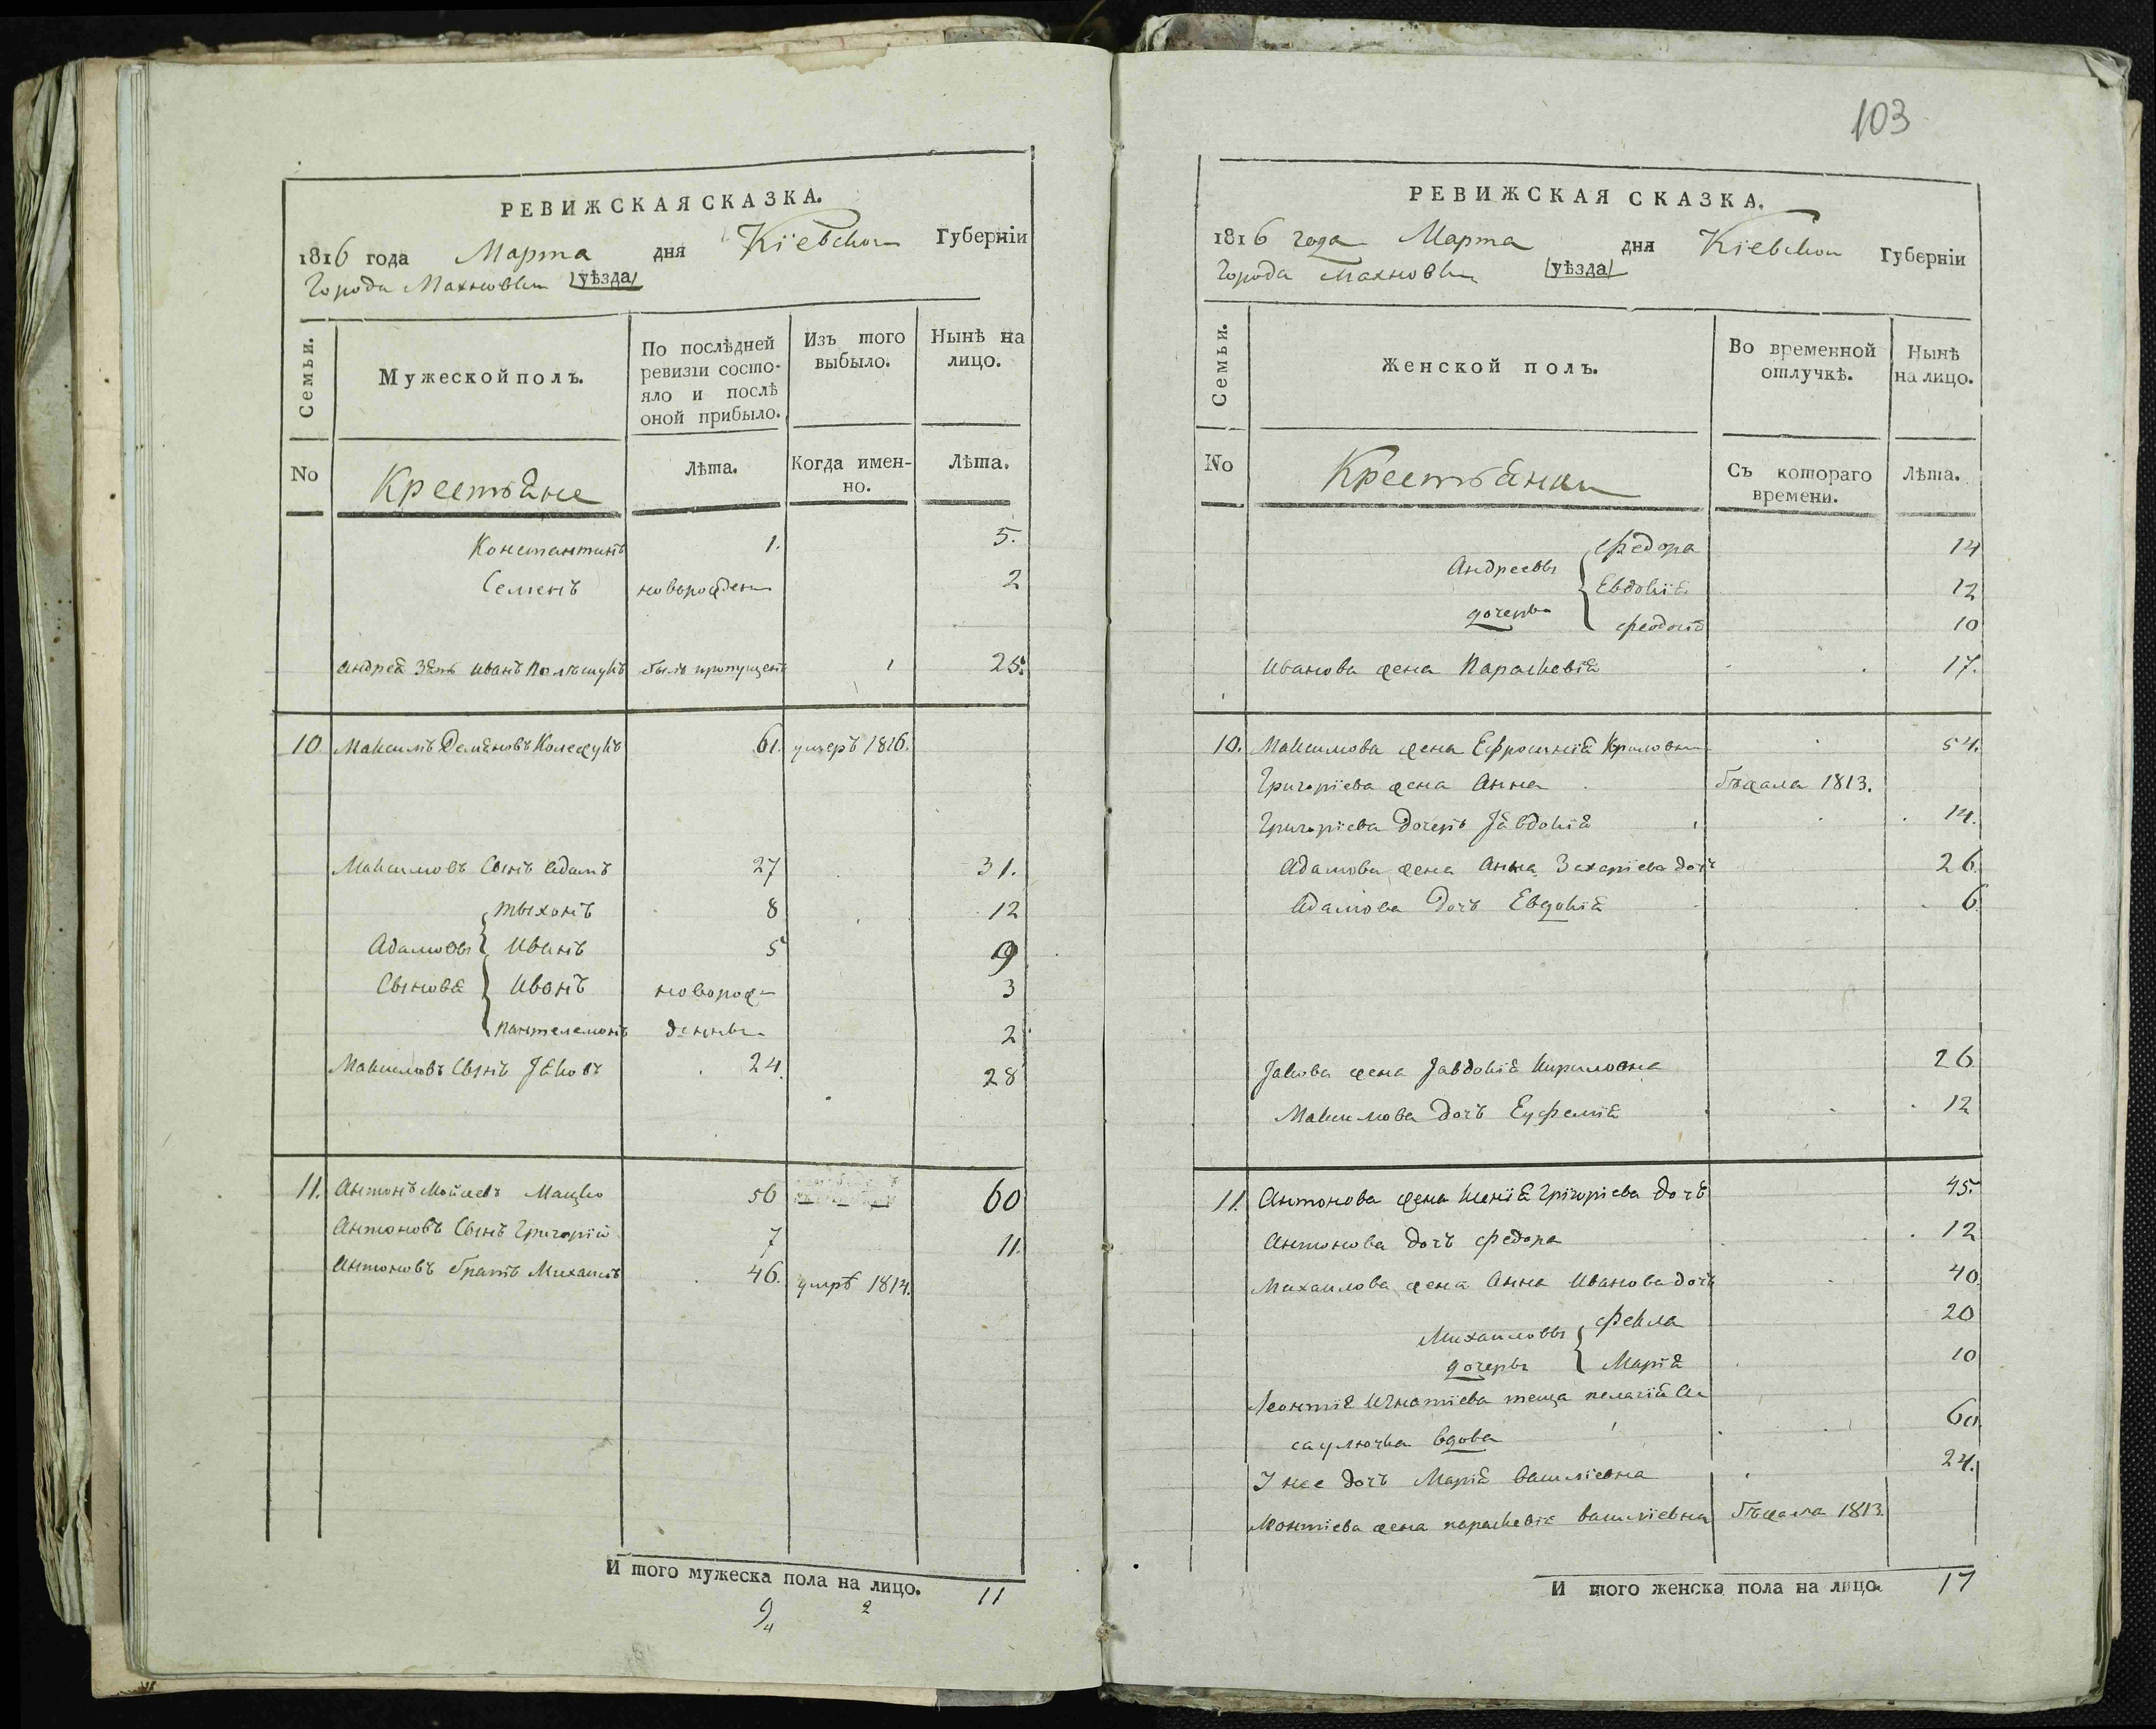 РЕВИЖСКАЯ СКАЗКА.
1816 года Марта дня Кіевской Губерніи
Города Махновки уѣзда
Семьи.
Мужеской полъ.
По послѣдней ревизіи состо-
яло и послѣ
оной прибыло.
Изъ того
выбыло.
Нынѣ на
лицо.
No
Крестьяне
Лѣта.
Когда имен-
но.
Лѣта.
Константинъ 1. 5.
Семенъ новорожден 2
Андрея Зять Иванъ Полѣщукъ былъ пропущенъ 25.
10 Максимъ Демяновъ Колежукъ 61. умеръ 1816.
Максимовъ Сынъ Адамъ 27 31.
Тыхонъ 8 12
Адамовы Иванъ 5 9
Сыновя Иванъ новорож- 3
Пантелемонъ денны 2
Максимовъ Сынъ Яковъ 24. 28
11. Антонъ Мойсеевъ Мацко 56 60
Антоновъ Сынъ Григорій 7 11.
Антоновъ братъ Михаилъ 46. умрѣ 1814.
И того мужеска пола на лицо. 11
2
103
РЕВИЖСКАЯ СКАЗКА.
1816 года Марта дня Кіевской Губерніи
Города Махновки уѣзда
Семьи.
Женской полъ.
Во временной
отлучкѣ.
Нынѣ
на лицо.
No
Крестьянки
Съ котораго
времени.
Лѣта.
Федора 14
Андреевы
Евдокія 12
дочеры
Феодосія 10
Иванова жена Параскевія 17.
10. Максимова жена Ефросинія 54.
Григоріева жена Анна бѣжала 1813.
Григоріева дочерь Явдокія 14.
Адамова жена Анна Захаріева дочъ 26
Адамова дочъ Евдокія 6
Якова жена Явдокія Кириловна 26
Максимова дочъ Еуфемія 12
11. Антонова жена Ксенія Григоріева дочъ 45.
Антонова дочъ Федора 12
Михаилова жена Анна Иванова дочъ 40.
Михаиловы Фекла 20
дочеры Марія 10
Леонтія Игнатіева теща Пелагія
вдова 60
У нее дочъ Марія Василіевна 24.
Леонтіева жена Параскевія Василіевна бѣжала 1813.
И того женска пола на лицо. 17